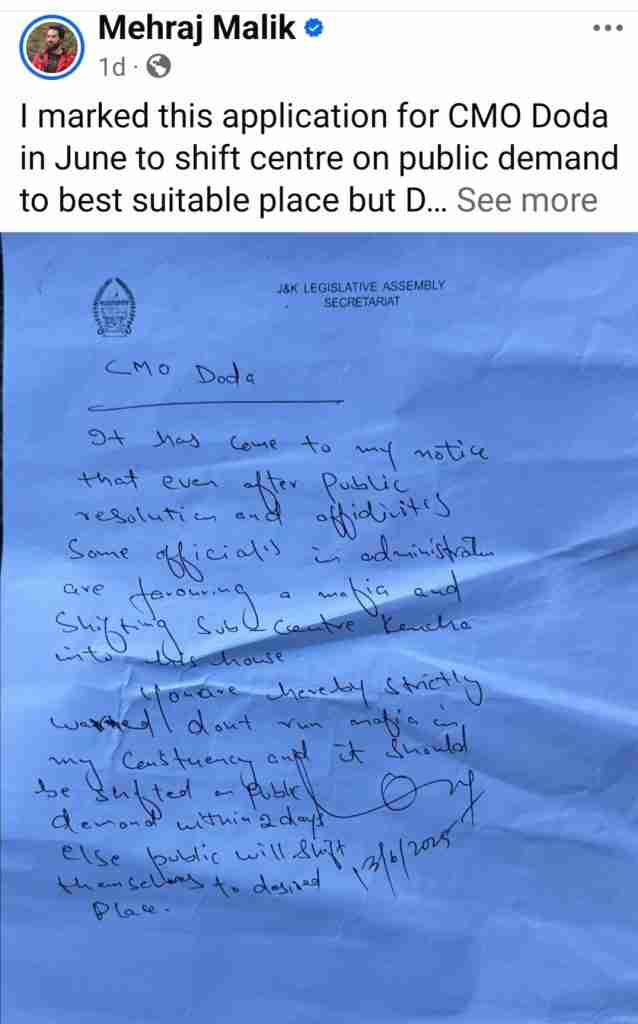 Mehraj Malik
1d
I marked this application for CMO Doda
in June to shift centre on public demand
to best suitable place but D... See more
J&K LEGISLATIVE ASSEMBLY
SECRETARIAT
CMO Doda
It has come to my notice
that even after Public
resolution and affidivites
Some officials in administration
are favouring a mafia and
Shifting Sub Centre Kencha
into his house
You are hereby strictly
warned dont run mafia in
my Constuency and it should
be shifted on public
demand within 2 days
else public will shift 13/6/2025
themselves to desired
Place.